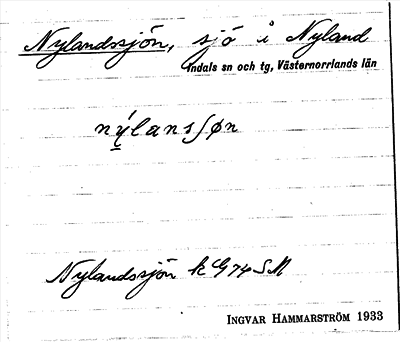 Nylandssjön, sjö i Nyland
Indals sn och tg, Västernorrlands län
nýlansʃøn
Nylandssjön k G74 SM
INGVAR HAMMARSTRÖM 1933